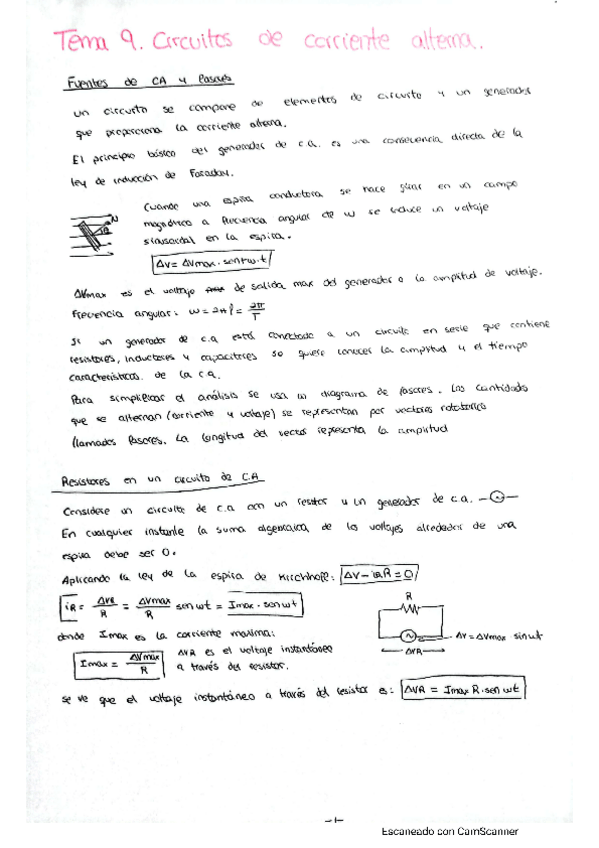 Tema 9. Circuitos de corriente alterna.
Fuentes de CA y fasores
un circuito se compone de elementos de circuito y un generador
que proporciona la corriente alterna.
El principio básico del generador de c.a. es una consecuencia directa de la
ley de inducción de Faraday.
Cuando una espira conductora se hace girar en un campo
magnético a frecuencia angular de w se induce un voltaje
sinusoidal en la espira.
N
ΔV = ΔVmax · sen w·t
ΔVmax es el voltaje de salida max del generador o la amplitud de voltaje.
Frecuencia angular: w = 2πf = 2π/T
Si un generador de c.a está conectado a un circuito en serie que contiene
resistores, inductores y capacitores se quiere conocer la amplitud y el tiempo
características de la c.a.
Para simplificar el análisis se usa un diagrama de fasores. Las cantidades
que se alternan (corriente y voltaje) se representan por vectores rotatorios
llamados fasores. La longitud del vector representa la amplitud
Resistores en un circuito de C.A
Considere un circuito de c.a con un resistor y un generador de c.a.
En cualquier instante la suma algebraica de los voltajes alrededor de una
espira debe ser 0.
Aplicando la ley de la espira de Kirchhoff: ΔV - iR R = 0
iR = ΔVR/R = ΔVmax/R sen wt = Imax · sen wt
R
ΔV = ΔVmax sin wt
ΔVR
donde Imax es la corriente maxima:
Imax = ΔVmax/R
ΔVR es el voltaje instantáneo
a través del resistor.
se ve que el voltaje instantáneo a través del resistor es: ΔVR = Imax R · sen wt
-1-
Escaneado con CamScanner